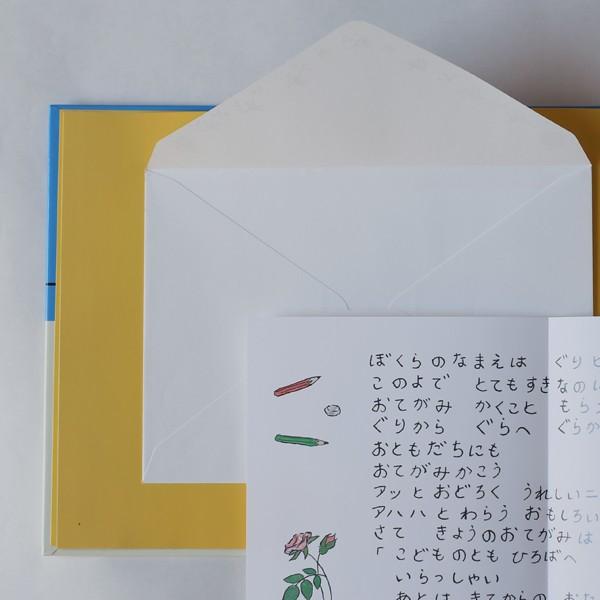 ぼくら のなまえは ぐり と
このよで とてもすきなのは
おてがみ かくこと もらうこ
ぐりから ぐらへ ぐらか
おともだちにも
おてがみかこう
アッと おどろく うれしいニ
アハハと わらう おもしろい
さて きょうのおてがみは
「こどものとも ひろばへ
いらっしゃい
あとは きてからの おた